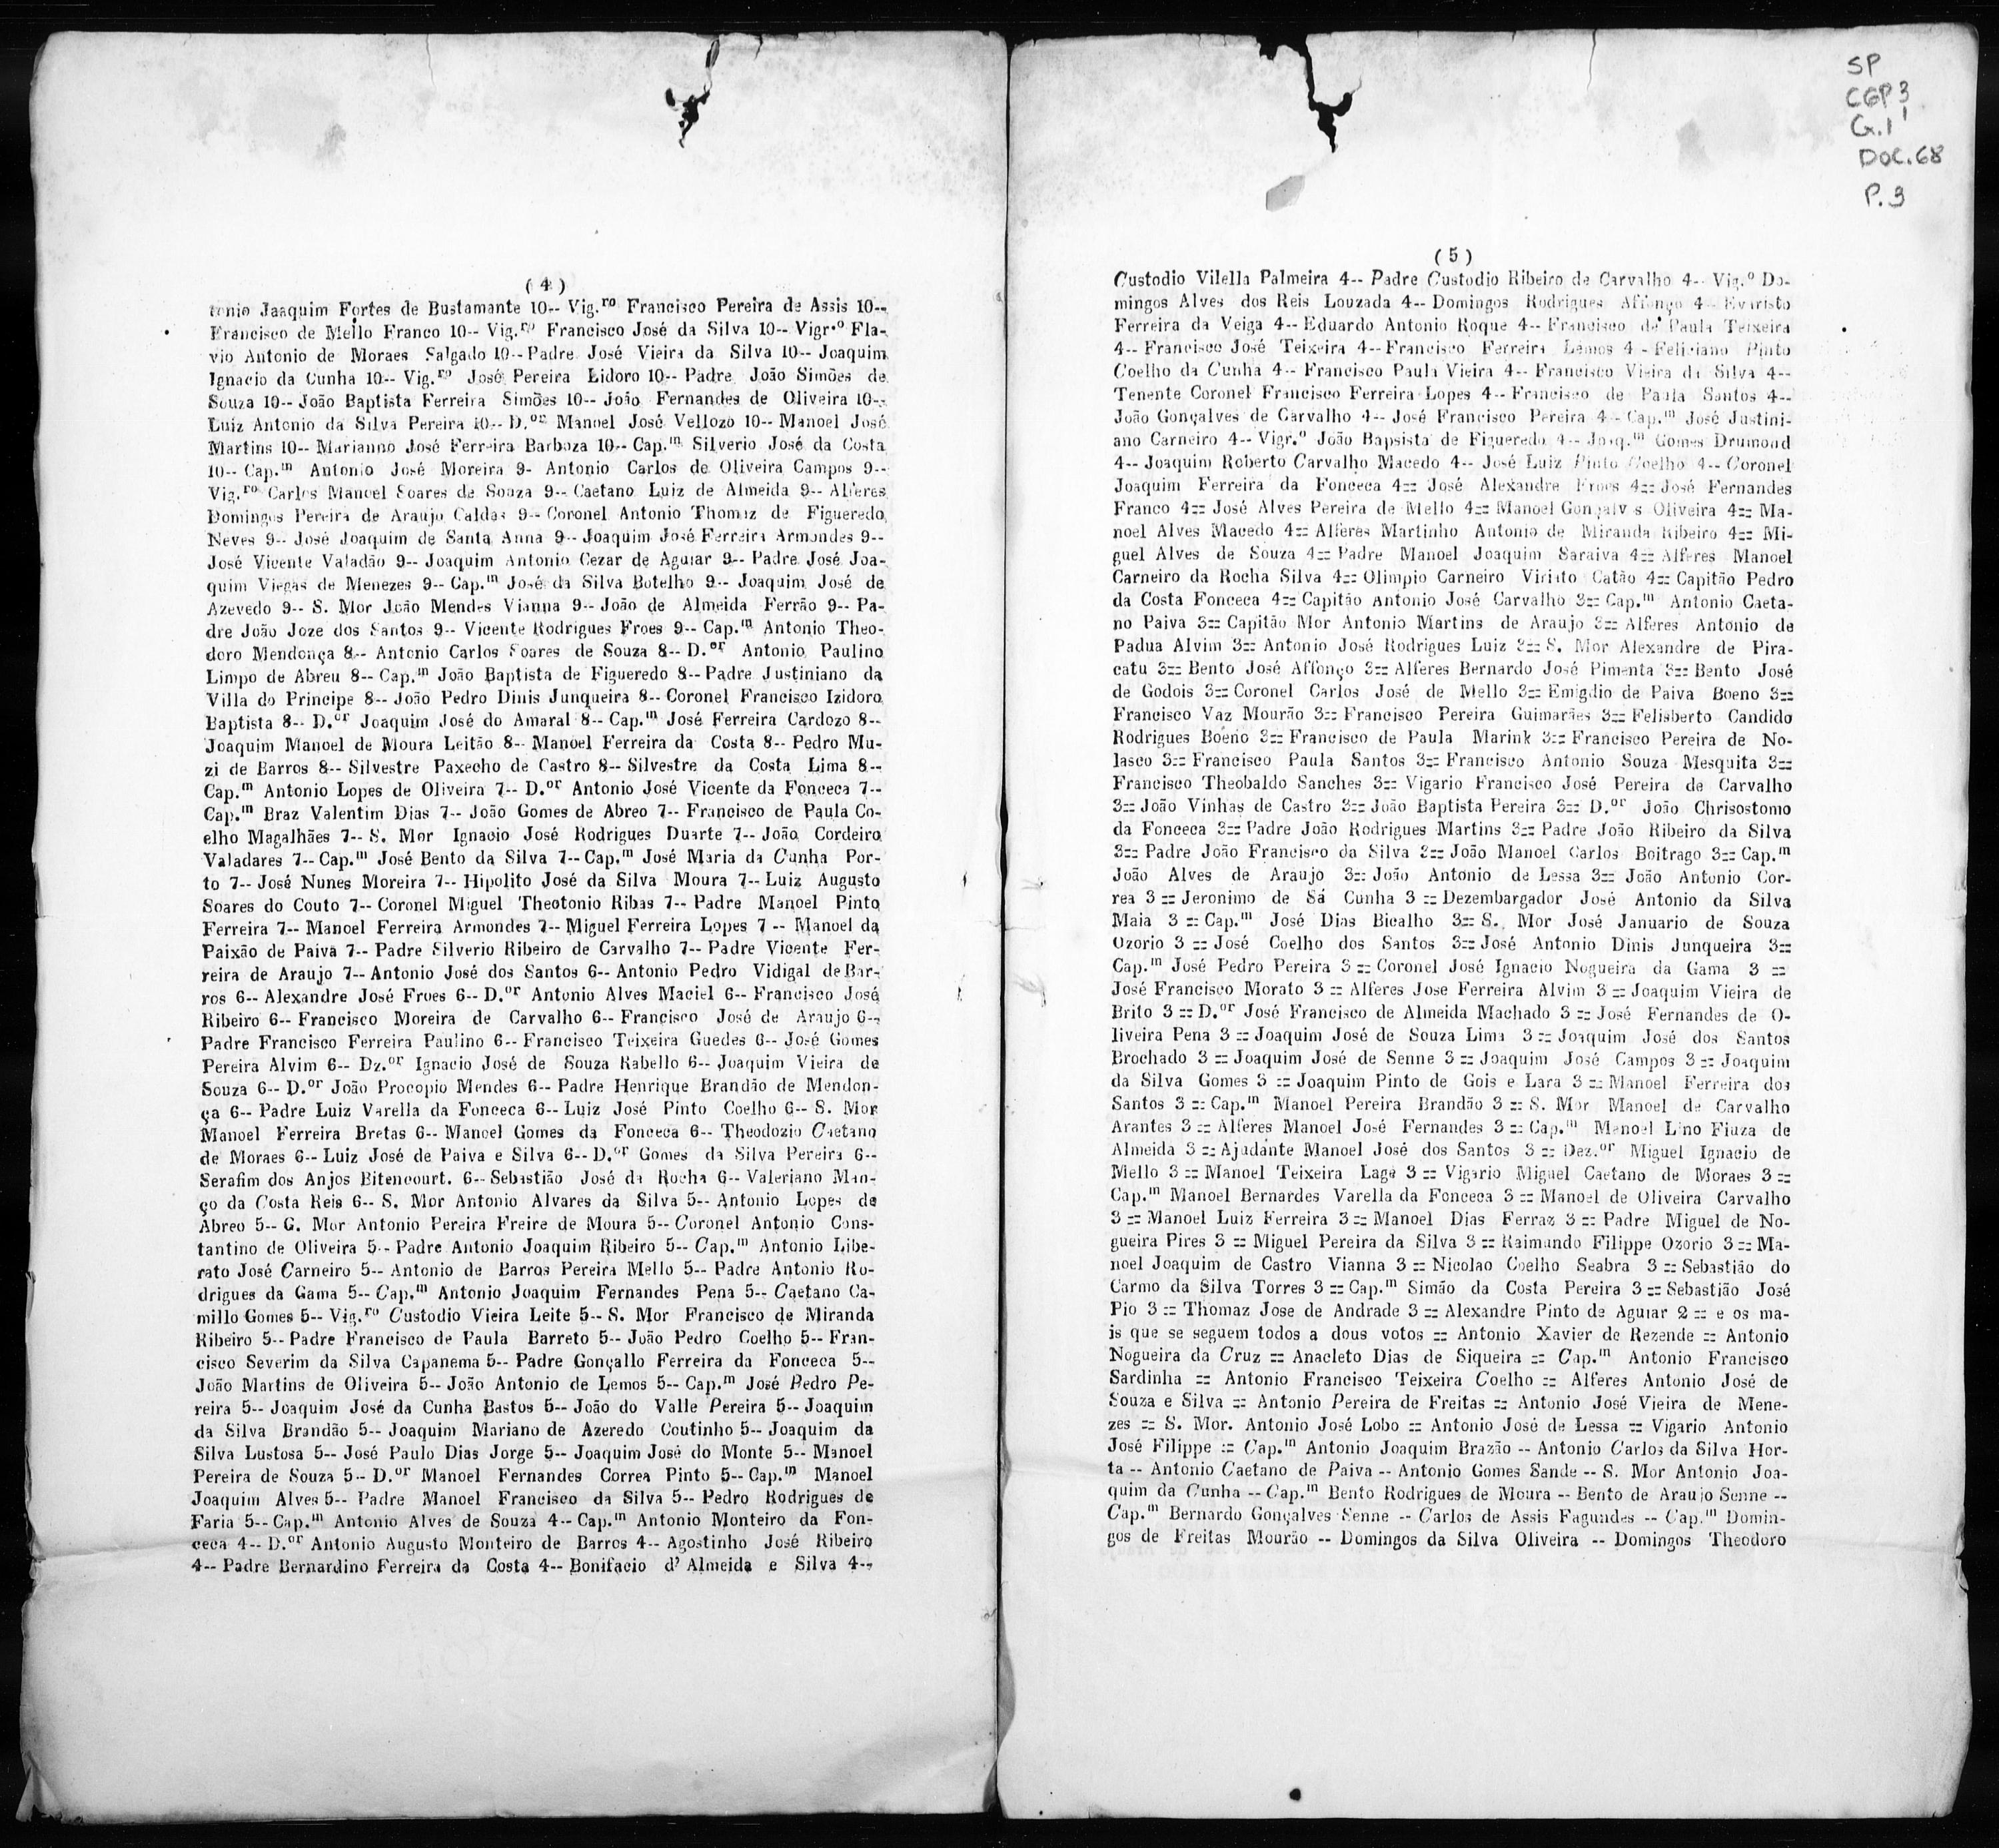 ( 4 )
tonio Jaaquim Fortes de Bustamante 10-- Vig.ro Francisco Pereira de Assis 10--
Francisco de Mello Franco 10-- Vig.ro Francisco José da Silva 10-- Vigr.o Fla-
vio Antonio de Moraes Salgado 10-- Padre José Vieira da Silva 10-- Joaquim
Ignacio da Cunha 10-- Vig.ro José Pereira Lidoro 10-- Padre João Simões de
Souza 10-- João Baptista Ferreira Simões 10-- João Fernandes de Oliveira 10--
Luiz Antonio da Silva Pereira 10-- D.or Manoel José Vellozo 10-- Manoel José
Martins 10-- Marianno José Ferreira Barboza 10-- Cap.m Silverio José da Costa
10-- Cap.m Antonio José Moreira 9- Antonio Carlos de Oliveira Campos 9--
Vig.ro Carlos Manoel Soares de Souza 9-- Caetano Luiz de Almeida 9-- Alferes
Domingos Pereira de Araujo Caldas 9-- Coronel Antonio Thomaz de Figueredo
Neves 9-- José Joaquim de Santa Anna 9-- Joaquim José Ferreira Armondes 9--
José Vicente Valadão 9-- Joaquim Antonio Cezar de Aguiar 9-- Padre José Joa-
quim Viegas de Menezes 9-- Cap.m José da Silva Botelho 9-- Joaquim José de
Azevedo 9-- S. Mor João Mendes Vianna 9-- João de Almeida Ferrão 9-- Pa-
dre João Joze dos Santos 9-- Vicente Rodrigues Froes 9-- Cap.m Antonio Theo-
doro Mendonça 8-- Antonio Carlos Soares de Souza 8-- D.or Antonio Paulino
Limpo de Abreu 8-- Cap.m João Baptista de Figueredo 8-- Padre Justiniano da
Villa do Principe 8-- João Pedro Dinis Junqueira 8-- Coronel Francisco Izidoro
Baptista 8-- D.or Joaquim José do Amaral 8-- Cap.m José Ferreira Cardozo 8--
Joaquim Manoel de Moura Leitão 8-- Manoel Ferreira da Costa 8-- Pedro Mu-
zi de Barros 8-- Silvestre Paxecho de Castro 8-- Silvestre da Costa Lima 8--
Cap.m Antonio Lopes de Oliveira 7-- D.or Antonio José Vicente da Fonceca 7--
Cap.m Braz Valentim Dias 7-- João Gomes de Abreo 7-- Francisco de Paula Co-
elho Magalhães 7-- S. Mor Ignacio José Rodrigues Duarte 7-- João Cordeiro
Valadares 7-- Cap.m José Bento da Silva 7-- Cap.m José Maria da Cunha Por-
to 7-- José Nunes Moreira 7-- Hipolito José da Silva Moura 7-- Luiz Augusto
Soares do Couto 7-- Coronel Miguel Theotonio Ribas 7-- Padre Manoel Pinto
Ferreira 7-- Manoel Ferreira Armondes 7-- Miguel Ferreira Lopes 7 -- Manoel da
Paixão de Paiva 7-- Padre Silverio Ribeiro de Carvalho 7-- Padre Vicente Fer-
reira de Araujo 7-- Antonio José dos Santos 6-- Antonio Pedro Vidigal de Bar-
ros 6-- Alexandre José Froes 6-- D.or Antonio Alves Maciel 6-- Francisco José
Ribeiro 6-- Francisco Moreira de Carvalho 6-- Francisco José de Araujo 6--
Padre Francisco Ferreira Paulino 6-- Francisco Teixeira Guedes 6-- José Gomes
Pereira Alvim 6-- Dz.or Ignacio José de Souza Rabello 6-- Joaquim Vieira de
Souza 6-- D.or João Procopio Mendes 6-- Padre Henrique Brandão de Mendon-
ça 6-- Padre Luiz Varella da Fonceca 6-- Luiz José Pinto Coelho 6-- S. Mor
Manoel Ferreira Bretas 6-- Manoel Gomes da Fonceca 6-- Theodozio Caetano
de Moraes 6-- Luiz José de Paiva e Silva 6-- D.or Gomes da Silva Pereira 6--
Serafim dos Anjos Bitencourt. 6-- Sebastião José da Rocha 6-- Valeriano Man-
ço da Costa Reis 6-- S. Mor Antonio Alvares da Silva 5-- Antonio Lopes de
Abreo 5-- G. Mor Antonio Pereira Freire de Moura 5-- Coronel Antonio Cons-
tantino de Oliveira 5-- Padre Antonio Joaquim Ribeiro 5-- Cap.m Antonio Libe-
rato José Carneiro 5-- Antonio de Barros Pereira Mello 5-- Padre Antonio Ro-
drigues da Gama 5-- Cap.m Antonio Joaquim Fernandes Pena 5-- Caetano Ca-
millo Gomes 5-- Vig.ro Custodio Vieira Leite 5-- S. Mor Francisco de Miranda
Ribeiro 5-- Padre Francisco de Paula Barreto 5-- João Pedro Coelho 5-- Fran-
cisco Severim da Silva Capanema 5-- Padre Gonçallo Ferreira da Fonceca 5--
João Martins de Oliveira 5-- João Antonio de Lemos 5-- Cap.m José Pedro Pe-
reira 5-- Joaquim José da Cunha Bastos 5-- João do Valle Pereira 5-- Joaquim
da Silva Brandão 5-- Joaquim Mariano de Azeredo Coutinho 5-- Joaquim da
Silva Lustosa 5-- José Paulo Dias Jorge 5-- Joaquim José do Monte 5-- Manoel
Pereira de Souza 5-- D.or Manoel Fernandes Correa Pinto 5-- Cap.m Manoel
Joaquim Alves 5-- Padre Manoel Francisco da Silva 5-- Pedro Rodrigues de
Faria 5-- Cap.m Antonio Alves de Souza 4-- Cap.m Antonio Monteiro da Fon-
ceca 4-- D.or Antonio Augusto Monteiro de Barros 4-- Agostinho José Ribeiro
4-- Padre Bernardino Ferreira da Costa 4-- Bonifacio d' Almeida e Silva 4--
SP
CGP 3
G.1
DOC.68
P.3
( 5 )
Custodio Vilella Palmeira 4-- Padre Custodio Ribeiro de Carvalho 4-- Vig.o Do-
mingos Alves dos Reis Louzada 4-- Domingos Rodrigues Affonço 4-- Evaristo
Ferreira da Veiga 4-- Eduardo Antonio Roque 4-- Francisco de Paula Teixeira
4-- Francisco José Teixeira 4-- Francisco Ferreira Lemos 4 - Feliciano Pinto
Coelho da Cunha 4-- Francisco Paula Vieira 4-- Francisco Vieira da Silva 4--
Tenente Coronel Francisco Ferreira Lopes 4-- Francisco de Paula Santos 4--
João Gonçalves de Carvalho 4-- José Francisco Pereira 4-- Cap.m José Justini-
ano Carneiro 4-- Vigr.o João Bapsista de Figueredo 4-- Joaq.m Gomes Drumond
4-- Joaquim Roberto Carvalho Macedo 4-- José Luiz Pinto Coelho 4-- Coronel
Joaquim Ferreira da Fonceca 4== José Alexandre Froes 4== José Fernandes
Franco 4== José Alves Pereira de Mello 4== Manoel Gonçalv s Oliveira 4== Ma-
noel Alves Macedo 4== Alferes Martinho Antonio de Miranda Ribeiro 4== Mi-
guel Alves de Souza 4== Padre Manoel Joaquim Saraiva 4== Alferes Manoel
Carneiro da Rocha Silva 4== Olimpio Carneiro Viriato Catão 4== Capitão Pedro
da Costa Fonceca 4== Capitão Antonio José Carvalho 3== Cap.m Antonio Caeta-
no Paiva 3== Capitão Mor Antonio Martins de Araujo 3== Alferes Antonio de
Padua Alvim 3== Antonio José Rodrigues Luiz 3== S. Mor Alexandre de Pira-
catu 3== Bento José Affonço 3== Alferes Bernardo José Pimenta 3== Bento José
de Godois 3== Coronel Carlos José de Mello 3== Emigdio de Paiva Boeno 3==
Francisco Vaz Mourão 3== Francisco Pereira Guimarães 3== Felisberto Candido
Rodrigues Boeno 3== Francisco de Paula Marink 3== Francisco Pereira de No-
lasco 3== Francisco Paula Santos 3== Francisco Antonio Souza Mesquita 3==
Francisco Theobaldo Sanches 3== Vigario Francisco José Pereira de Carvalho
3== João Vinhas de Castro 3== João Baptista Pereira 3== D.or João Chrisostomo
da Fonceca 3== Padre João Rodrigues Martins 3== Padre João Ribeiro da Silva
3== Padre João Francisco da Silva 3== João Manoel Carlos Boitrago 3== Cap.m
João Alves de Araujo 3== João Antonio de Lessa 3== João Antonio Cor-
rea 3 == Jeronimo de Sá Cunha 3 == Dezembargador José Antonio da Silva
Maia 3 == Cap.m José Dias Bicalho 3== S. Mor José Januario de Souza
Ozorio 3 == José Coelho dos Santos 3== José Antonio Dinis Junqueira 3==
Cap.m José Pedro Pereira 3 == Coronel José Ignacio Nogueira da Gama 3 ==
José Francisco Morato 3 == Alferes Jose Ferreira Alvim 3 == Joaquim Vieira de
Brito 3 == D.or José Francisco de Almeida Machado 3 == José Fernandes de O-
liveira Pena 3 == Joaquim José de Souza Lima 3 == Joaquim José dos Santos
Brochado 3 == Joaquim José de Senne 3 == Joaquim José Campos 3 == Joaquim
da Silva Gomes 3 == Joaquim Pinto de Gois e Lara 3 == Manoel Ferreira dos
Santos 3 == Cap.m Manoel Pereira Brandão 3 == S. Mor Manoel de Carvalho
Arantes 3 == Alferes Manoel José Fernandes 3 == Cap.m Manoel Lino Fiuza de
Almeida 3 == Ajudante Manoel José dos Santos 3 == Dez.or Miguel Ignacio de
Mello 3 == Manoel Teixeira Lage 3 == Vigario Miguel Caetano de Moraes 3 ==
Cap.m Manoel Bernardes Varella da Fonceca 3 == Manoel de Oliveira Carvalho
3 == Manoel Luiz Ferreira 3 == Manoel Dias Ferraz 3 == Padre Miguel de No-
gueira Pires 3 == Miguel Pereira da Silva 3 == Raimundo Filippe Ozorio 3 == Ma-
noel Joaquim de Castro Vianna 3 == Nicolao Coelho Seabra 3 == Sebastião do
Carmo da Silva Torres 3 == Cap.m Simão da Costa Pereira 3 == Sebastião José
Pio 3 == Thomaz Jose de Andrade 3 == Alexandre Pinto de Aguiar 2 == e os ma-
is que se seguem todos a dous votos == Antonio Xavier de Rezende == Antonio
Nogueira da Cruz == Anacleto Dias de Siqueira == Cap.m Antonio Francisco
Sardinha == Antonio Francisco Teixeira Coelho == Alferes Antonio José de
Souza e Silva == Antonio Pereira de Freitas == Antonio José Vieira de Mene-
zes == S. Mor. Antonio José Lobo == Antonio José de Lessa == Vigario Antonio
José Filippe == Cap.m Antonio Joaquim Brazão -- Antonio Carlos da Silva Hor-
ta -- Antonio Caetano de Paiva -- Antonio Gomes Sande -- S. Mor Antonio Joa-
quim da Cunha -- Cap.m Bento Rodrigues de Moura -- Bento de Araujo Senne --
Cap.m Bernardo Gonçalves Senne -- Carlos de Assis Fagundes -- Cap.m Domin-
gos de Freitas Mourão -- Domingos da Silva Oliveira -- Domingos Theodoro